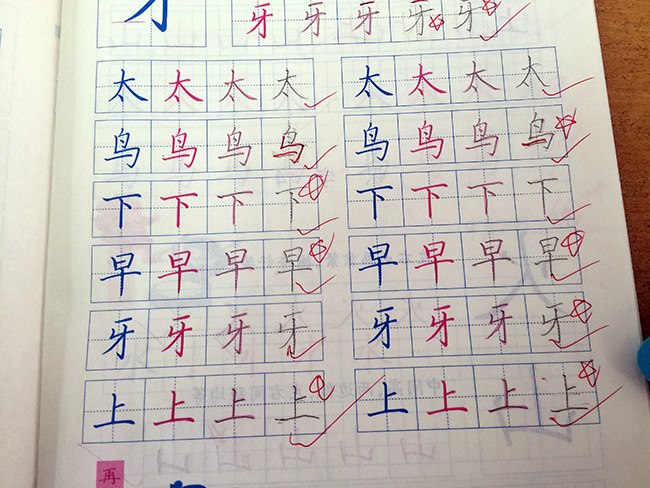 牙 牙 牙 牙 牙 牙
太 太 太 太 太 太 太 太
鸟 鸟 鸟 鸟 鸟 鸟 鸟 鸟
下 下 下 下 下 下 下 下
早 早 早 早 早 早 早 早
牙 牙 牙 牙 牙 牙 牙 牙
上 上 上 上 上 上 上 上
再